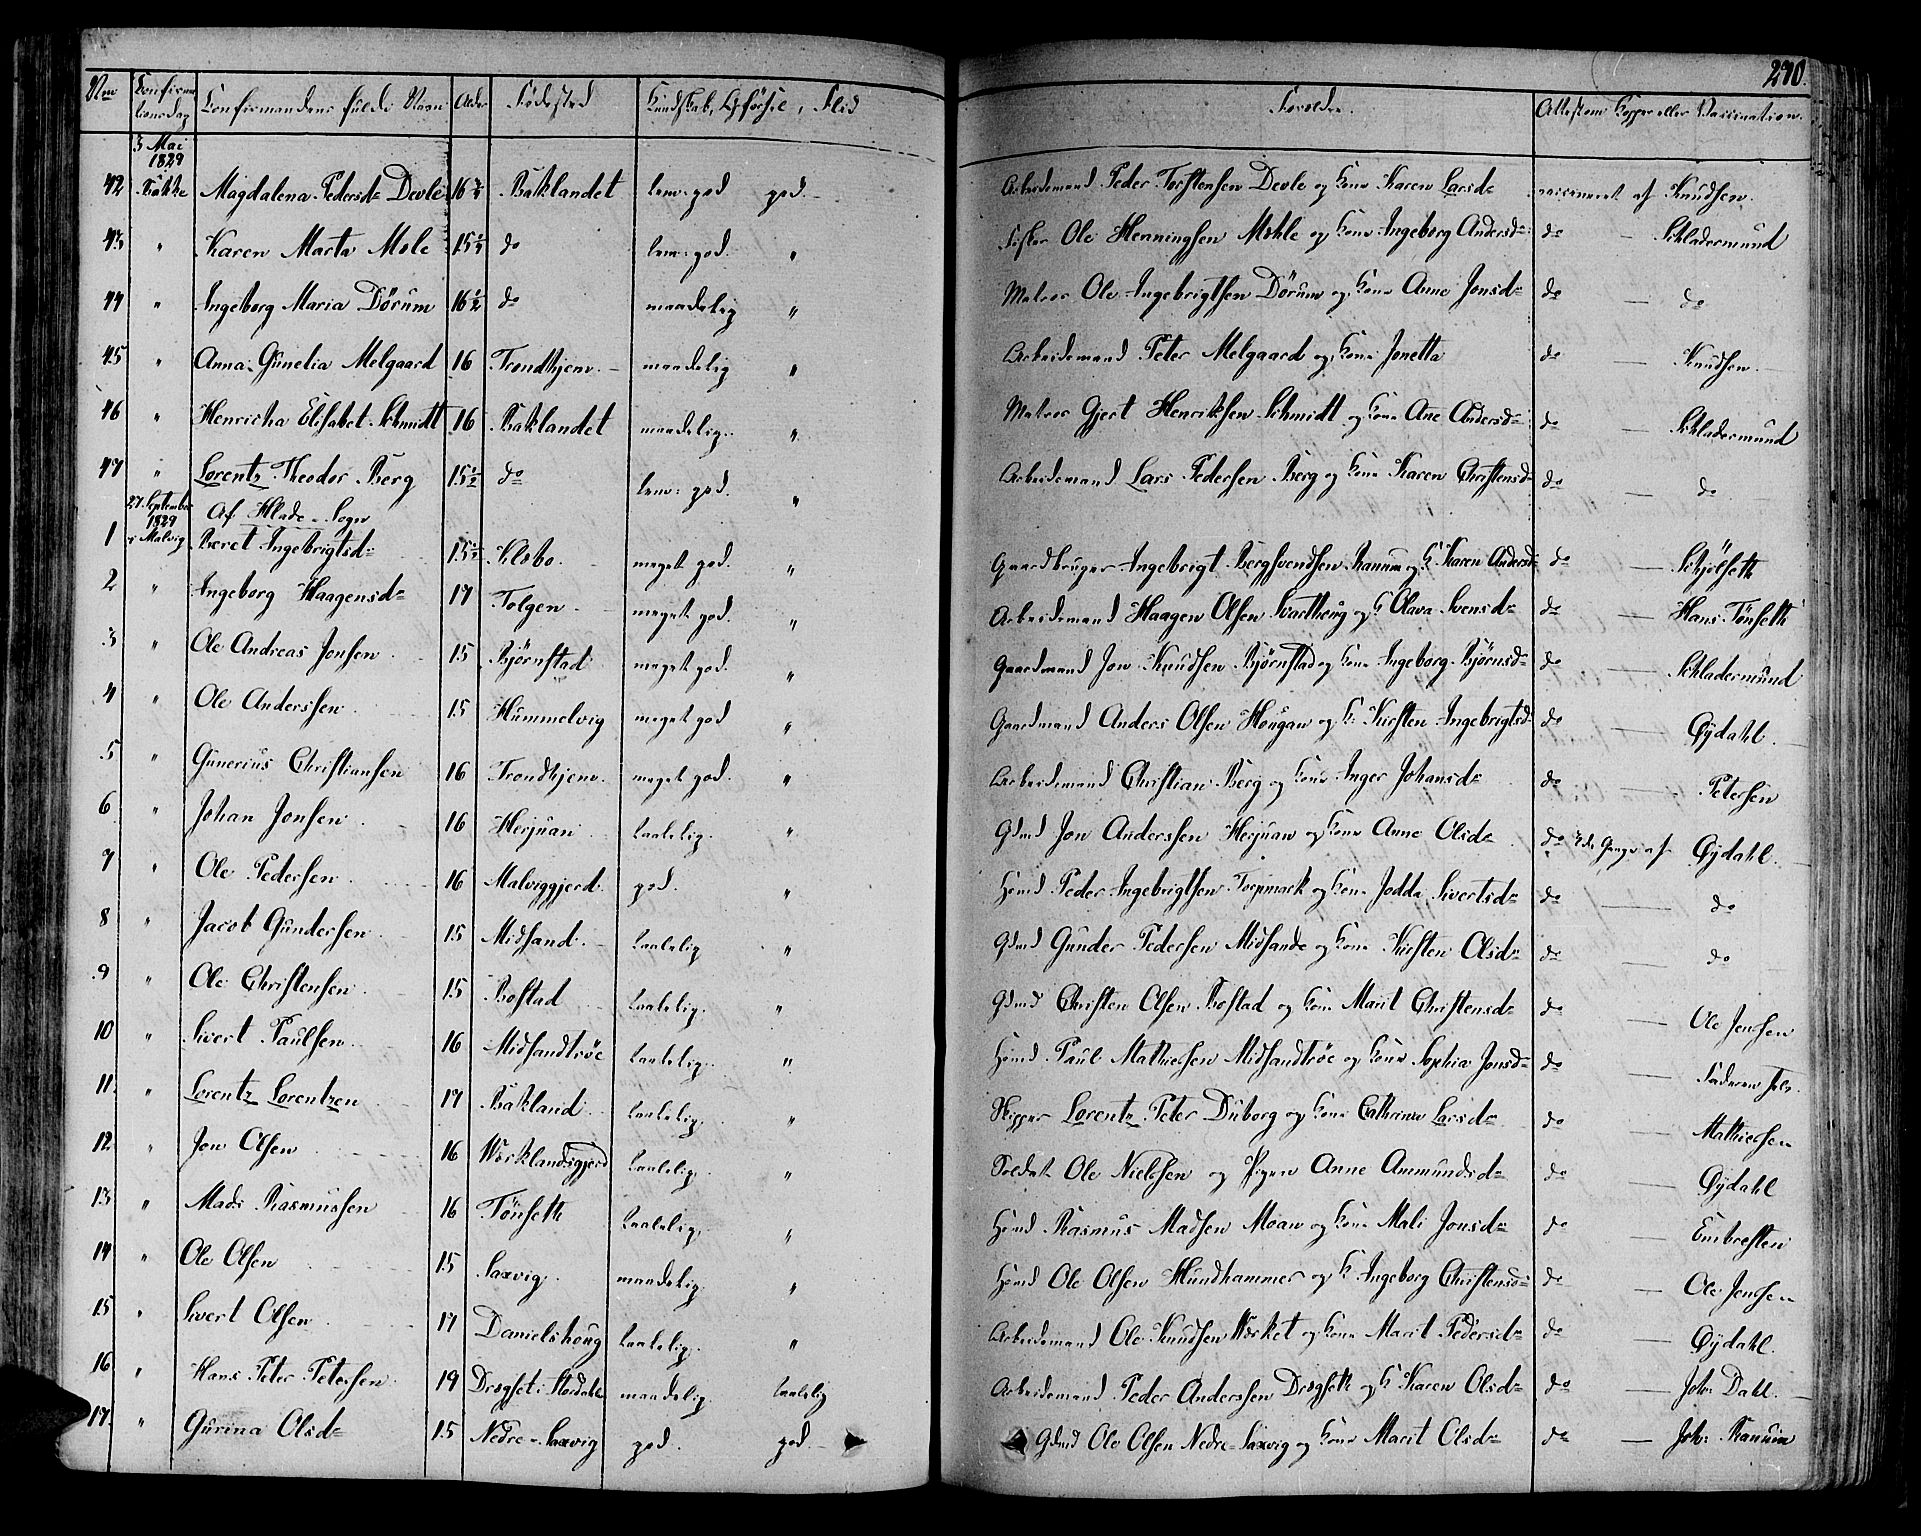 270.
Nro Confirmationsdag Confirmandens fulde Navn Alder Fødested Kundskab, Opførsel, Flid Forældre. Attest om Kopper eller Vaccination.
3 Mai
1829
42 i Bakke Magdalena Pedersd= Devle 16 Baklandet tem: god god. Arbeidsmand Peder Torstensen Devle og Kone Karen Larsd= vaccineret af Knudsen.
43 " Karen Marta Mole 15½ do tem: god. " Fisker Ole Henningsen Mohle og Kone Ingeborg Andersd= do — Schladermund
44 " Ingeborg Maria Dörum 16½ do maadelig " Matros Ole Ingebrigtsen Dörum og Kone Anne Jonsd= do — do
45 " Anna Gunelia Melgaard 16 Trondhjem. maadelig " Arbeidsmand Peter Melgaard og Kone Jonetta do — Knudsen.
46 " Henricha Elisabet Schmidt 16 Baklandet maadelig. " Matros Gjert Henriksen Schmidt og Kone Ane Andersd= do — Schladermund
47 " Lorentz Theodor Berg 15½ do tem: god. " Arbeidsmand Lars Pedersen Berg og Kone Karen Christensd= do — do
27. September
1829 Af Hlade-Sogn
1 i Malvig Beret Ingebrigtsd= 15½ Klsbo. meget god. " Gaardbruger Ingebrigt Bergsvendsen Ranum og K. Karen Andersd= do — Schjölseth
2 " Ingeborg Haagensd= 17 Tolgen meget god. " Arbeidsmand Haagen Olsen Svartheug og K Olava Svensd= do — Hans Tönseth
3 " Ole Andreas Jonsen 15 Björnstad meget god. " Gaardmand Jon Knudsen Björnstad og Kone Ingeborg Björnsd= do — Schladermund
4 " Ole Anderssen 15 Hummelvig meget god " Gaardmand Anders Olsen Hougan og K: Kirsten Ingebrigtsd= do — Öydahl.
5 " Gunerius Christiansen 16 Trondhjem. meget god. " Arbeidsmand Christian Berg og Kone Inger Johansd= do — Petersen
6. " Johan Jonsen 16 Herjuan taalelig. " Gdmd Jon Anderssen Herjuan og Kone Anne Olsd= do 2de Gange af Öydahl.
7 " Ole Pedersen 16 Malviggjerd. god. " Hsmd Peder Ingebrigtsen Torpmark og Kone Jodda Sivertsd= do — do
8 " Jacob Gundersen 15 Midsand. taalelig " Gdmd Gunder Pedersen Midsande og Kone Kirsten Olsd= do — do
9 " Ole Christensen 15 Bostad taalelig. " Gdmd Christen Olsen Bostad og Kone Marit Christensd= do — Ole Jenssen
10 " Sivert Paulsen 16 Midsandtröe taalelig. " Hsmd Paul Mathiesen Midsandtröe og Kone Sophia Jonsd= do — Faderen selv.
11. " Lorentz Lorentzen 17 Bakland. taalelig. " Skipper Lorentz Peter Duborg og Kone Cathrine Larsd= do — Mathiesen
12. " Jon Olsen 16 Wærklandsgjerd taalelig. " Soldat Ole Nielssen og Pigen Anne Ammundsd= do — Öydahl
13 " Mads Rasmussen 16 Tönseth taalelig. " Hsmd Rasmus Madsen Moan og Kone Mali Jonsd= do — Embretsen
14 " Ole Olsen 15 Saxvig. maadelig. " Hsmd Ole Olsen Hundhammer og K. Ingeborg Christensd= do — Ole Jenssen
15 " Sivert Olsen 17 Danielshoug taalelig. " Arbeidsmand Ole Knudsen Wærket og Kone Marit Pedersd= do — Öydahl.
16 " Hans Peter Petersen 19 Drogset i Stördalen maadelig. taalelig Arbeidsmand Peder Anderssen Drogseth og K Karen Olsd= do — Joh: Dahl.
17. " Gurina Olsd= 15 Nedre-Saxvig god. god Gdmd Ole Olsen Nedre-Saxvig og Kone Marit Olsd= do — Joh: Ranum